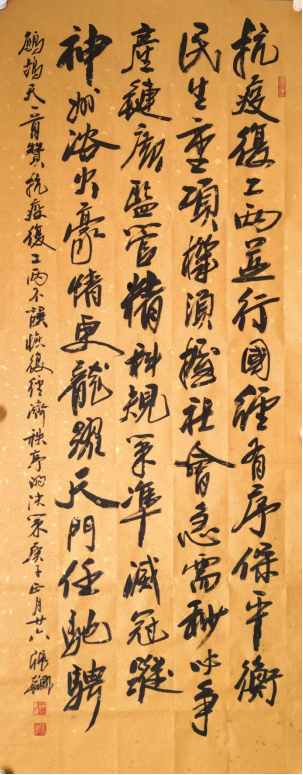 抗疫復工兩並行國經有序保平衡
民生重項須援社會急需秒必爭
產鏈顧監管精科規策準滅冠蹤
神州浴火豪情更龍躍天門任馳騁
鷓鴣天 贊抗疫復工兩不誤恢復經濟秩序的決策庚子正月廿六張